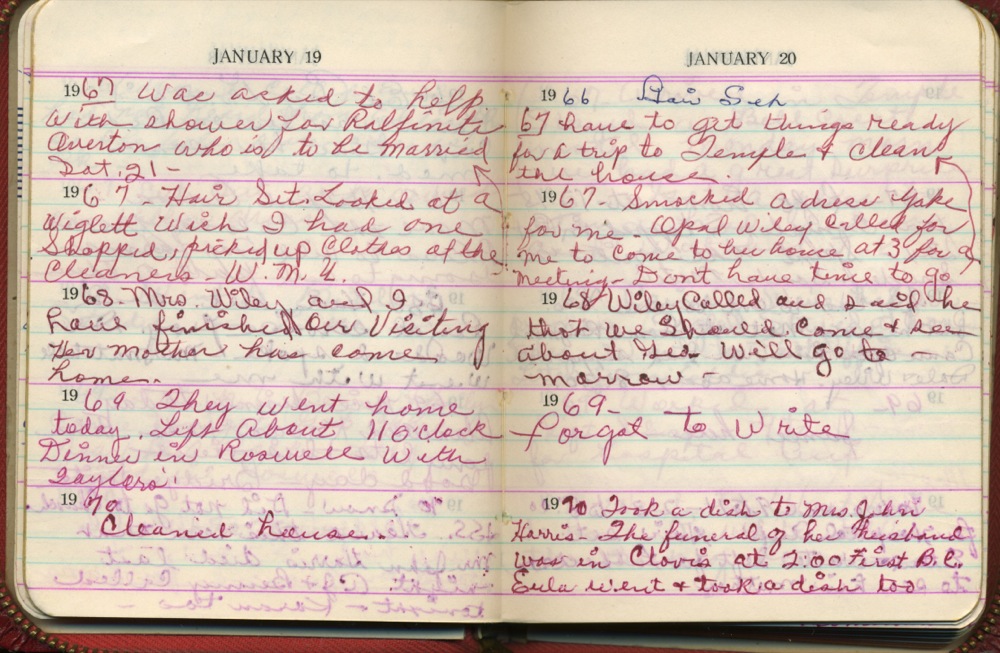 JANUARY 19
1967 Was asked to help
with shower for Ralfinita
Overton who is to be married
Sat. 21-
1967 - Hair Set. Looked at a
Wiglett Wich I had one
Shopped, picked up Clothes at the
Cleaners W.M.U.
1968. Mrs. Wiley and I
have finished Our Visiting
Her mother has come
home.
1969 They went home
today. Left About 11 O'Clock
Dinner in Roswell With
Taylors'
1970
Cleaned house.
JANUARY 20
1966 Hair Set
67 have to get things ready
for a trip to Temple & Clean
the house.
1967 - Smocked a dress Yoke
for me - Opal Wiley Called for
me to Come to her house at 3 for a
meeting - Don't have time to go
1968 Wiley Called and said he
that we Should Come & see
about Will go to -
morrow -
1969 -
forgot to Write
1970 Took a dish to Mrs. John
Harris - The funeral of her husband
was in Clovis at 2:00 First B.C.
Eula went & took a dish too